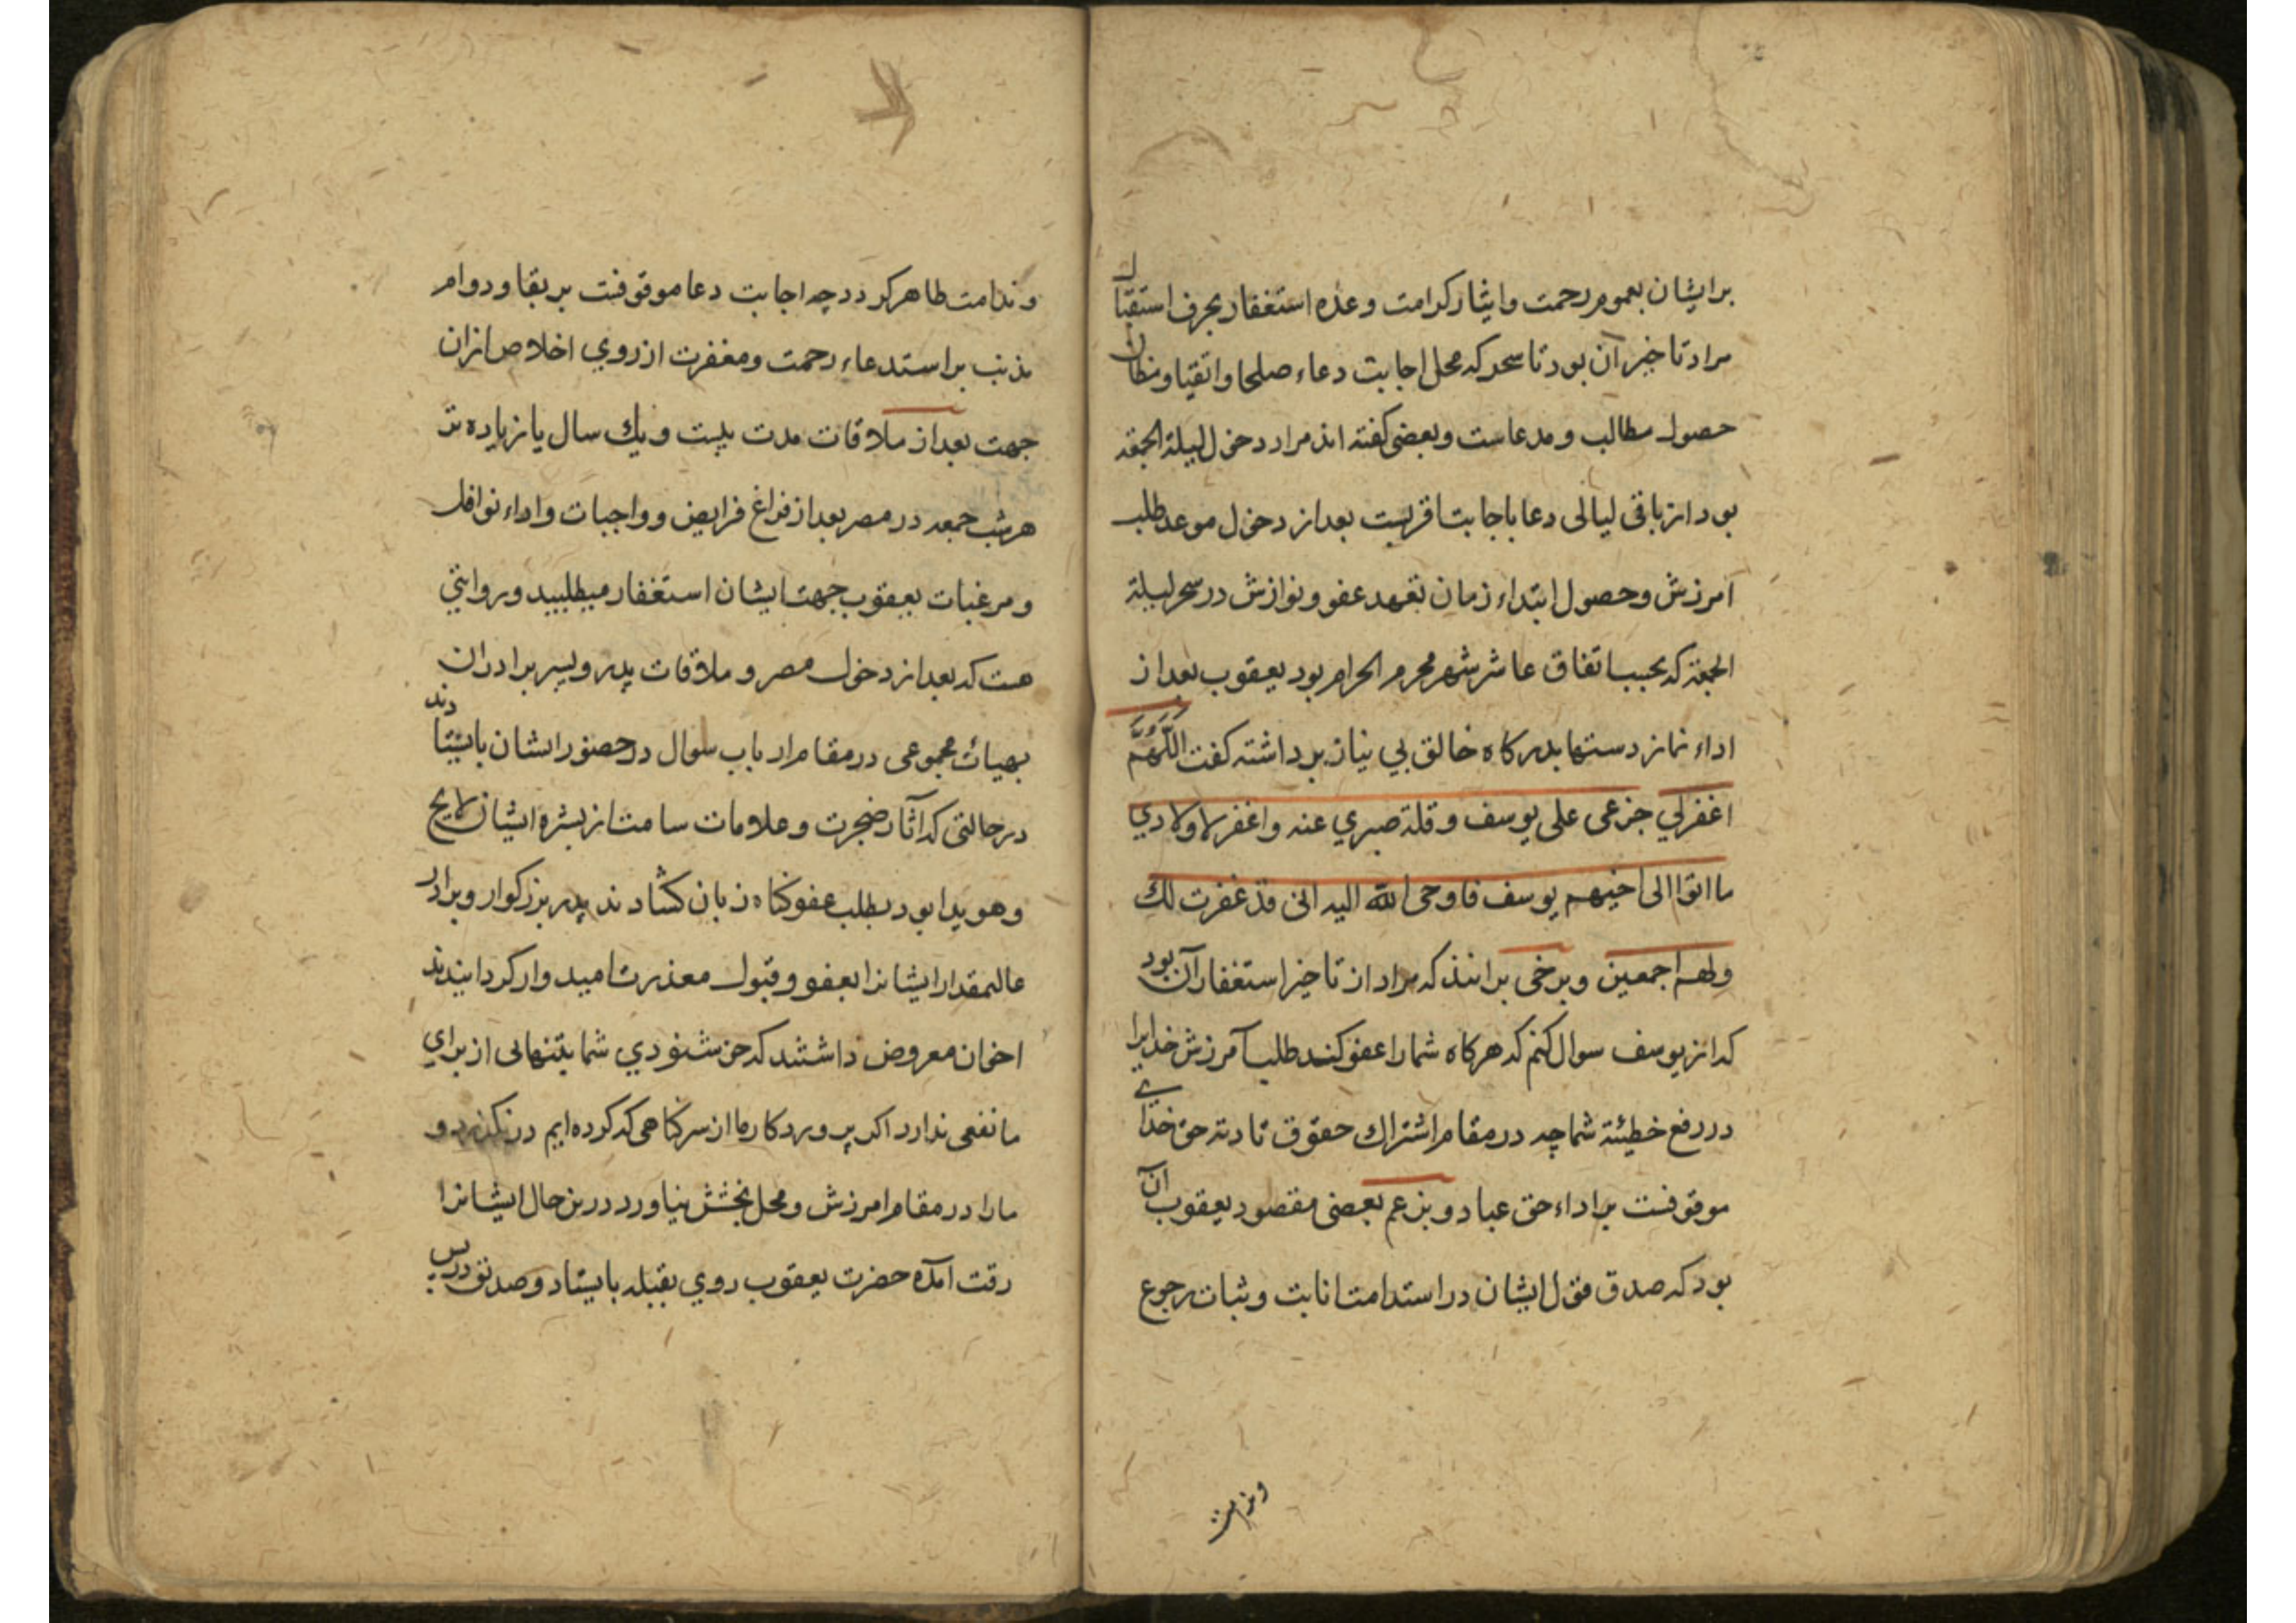 برایشان بعموم رحمت وایثار کرامت و عده استغفار بحرف استقبال
مراد تاخیر آن بود تا سحر که محل اجابت دعاء صلحا واتقیا ومظان
حصول مطالب ومدعاست وبعضی کفته اند مراد دخول لیلة الجمعه
بود از باقی لیالی دعا باجابت اقربست بعد از دخول موعد طلب
امرزش وحصول ابتداء زمان تعهد عفو ونوازش در سحر لیلة
الجمعة که بحسب اتفاق عاشر شهر محرم الحرام بود یعقوب بعد از
اداء نماز دستها بدرکاه خالق بی نیاز برداشته کفت اللَّهُمَّ
اغفرلي جزعی علی یوسف وقلة صبري عنه واغفر لاولادي
ما اتوا الی اخیهم یوسف فاوحی الله الیه انی قد غفرت لك
ولهم اجمعین وبرخی برانند که مراد از تاخیر استغفار آن بود
که از یوسف سوال کنم که هرکاه شما را عفو کند طلب آمرزش خدایرا
در رفع خطیئة شما چه در مقام اشتراك حقوق تادیة حق خدای
موقوفست بر اداء حق عباد وبزعم بعضی مقصود یعقوب آن
بود که صدق قول ایشان در استدامت انابت وثبات رجوع
وندامت
وندامت ظاهر کردد چه اجابت دعا موقوفست بر بقا ودوام
مذنب بر استدعاء رحمت ومغفرت از روي اخلاص ازان
جهت بعد از ملاقات مدت بیست ویك سال یا زیاده تر
هر شب جمعه در مصر بعد از فراغ فرایض وواجبات واداء نوافل
ومرغبات یعقوب جهت ایشان استغفار میطلبید وبروایتي
هست که بعد از دخول مصر وملاقات پدر وپسر برادران
بهیات مجموعی در مقام ارباب سوال در حضور ایشان بایستادند
در حالتی که آثار ضجرت وعلامات سامت از بشره ایشان لایح
وهویدا بود بطلب عفو کناه زبان کشادند پدر بزرکوار وبرادر
عالیمقدار ایشانرا بعفو وقبول معذرت امیدوار کردانیدند
اخوان معروض داشتند که خوشنودي شما بتنهائی از براي
ما نفعی ندارد اکر پروردکار ما از سر کناهی که کرده ایم درنکذرد و
مارا در مقام امرزش ومحل بخشش نیاورد درین حال ایشانرا
رقت آمده حضرت یعقوب روي بقبله بایستاد وصدیق در پس